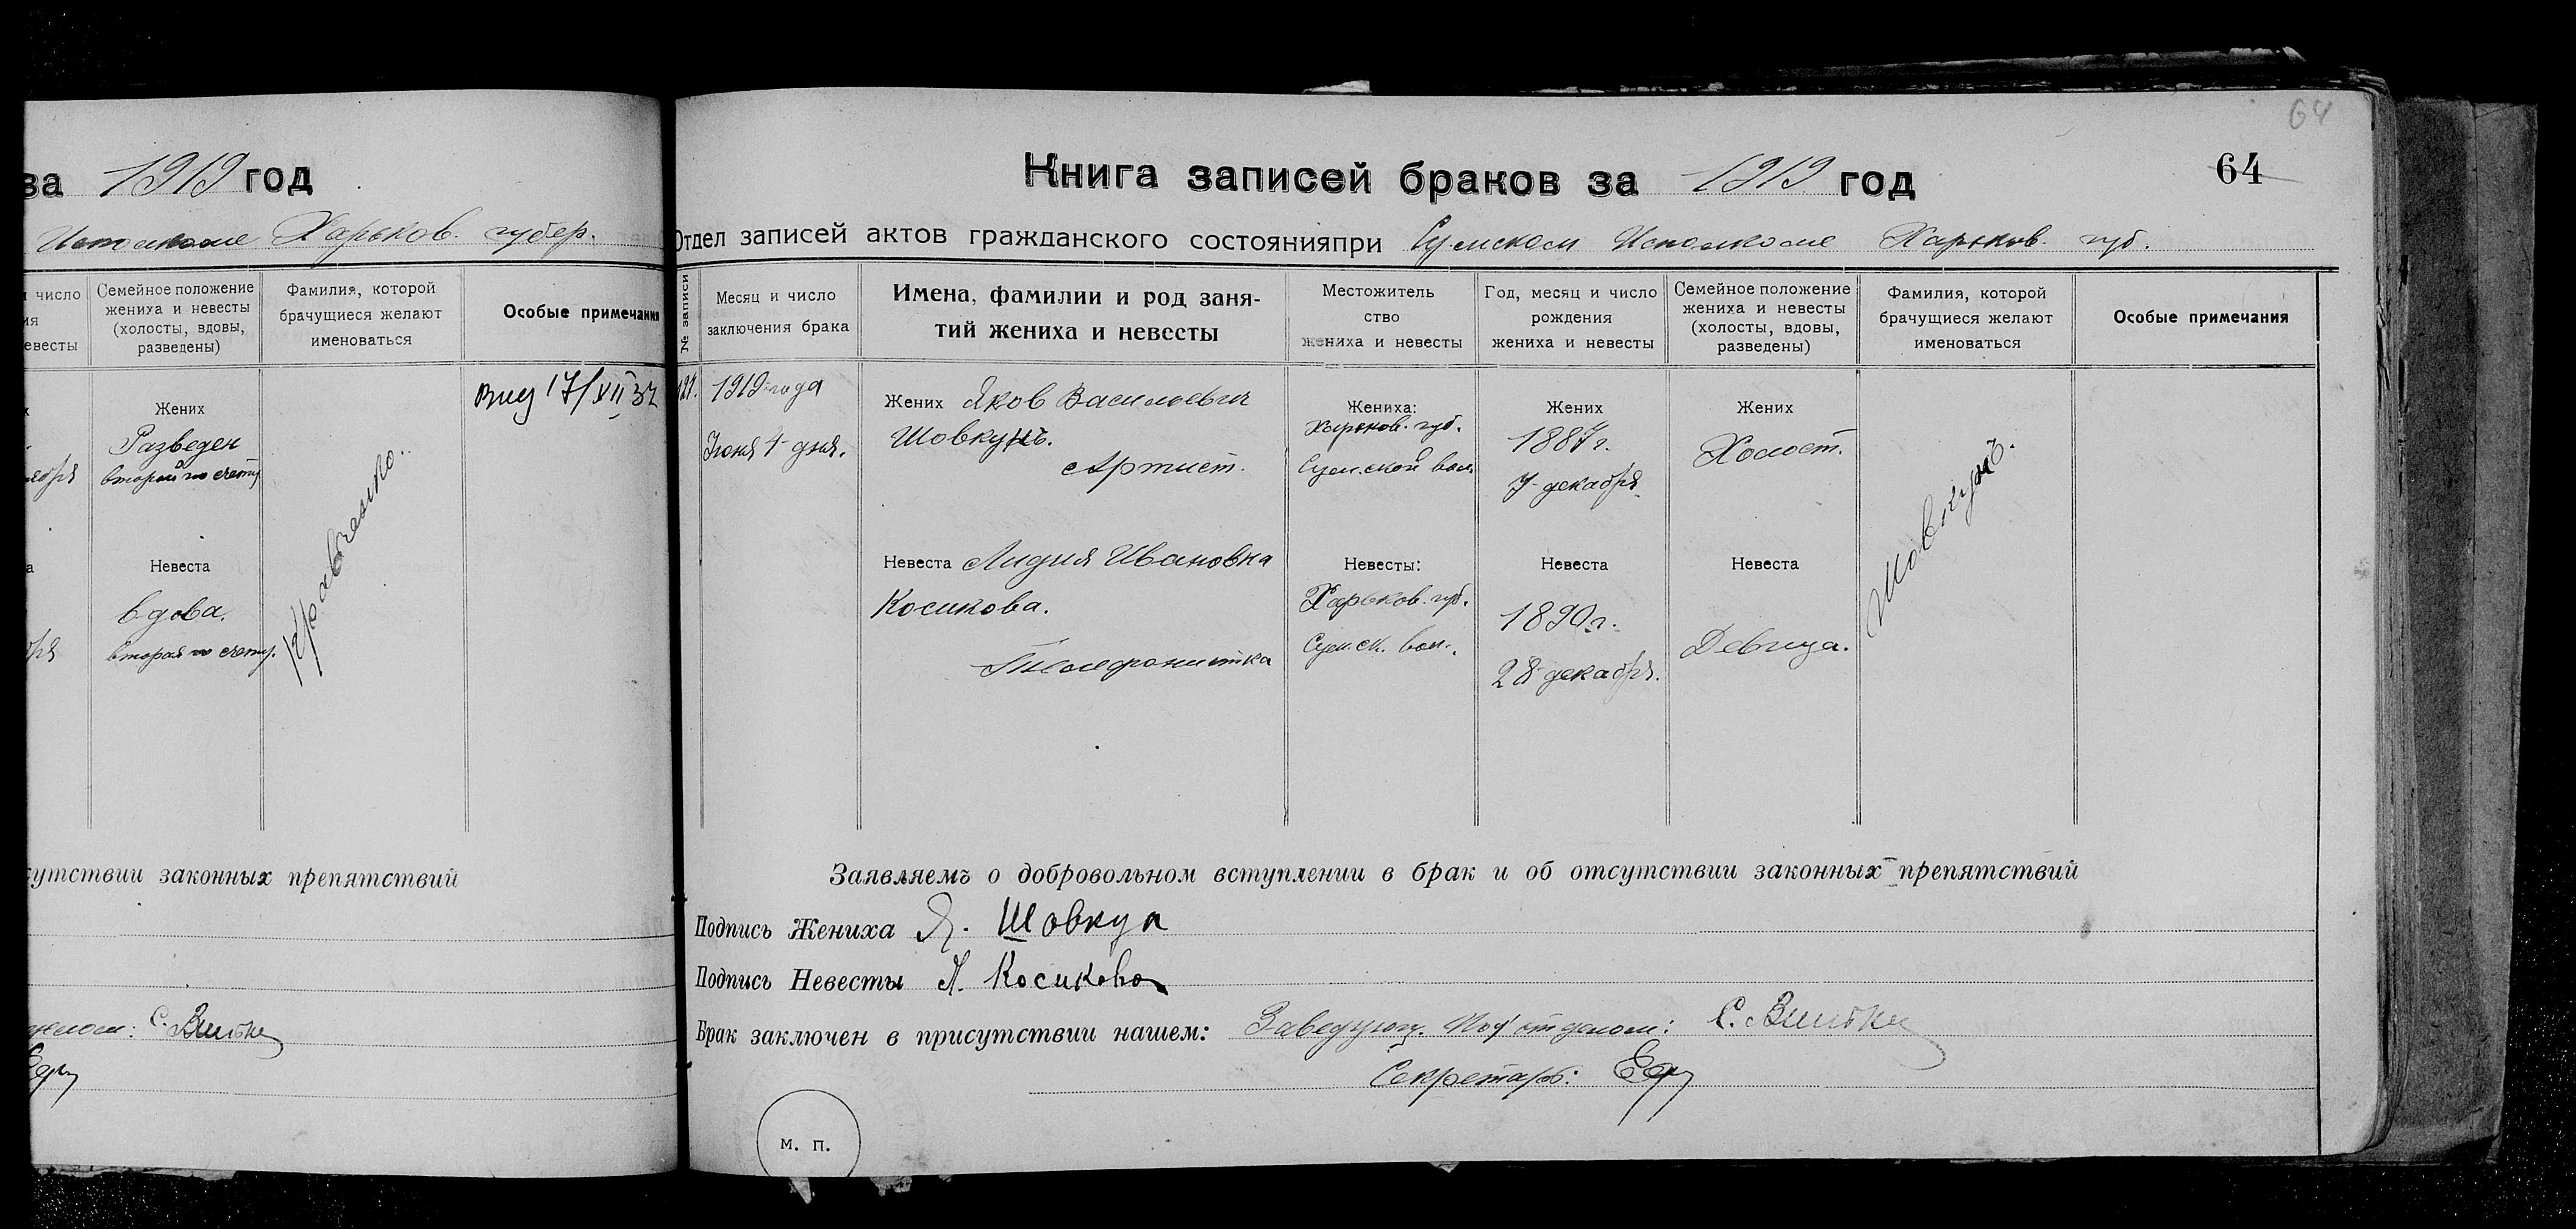 за 1919 год
Исполкоме Харьков. губер.
число
ия
евесты
Семейное положение
жениха и невесты
(холосты, вдовы,
разведены)
Фамилия, которой
брачущиеся желают
именоваться
Особые примечания
Жених
Разведен
второй по счету
Невеста
вдова.
вторая по счету.
Кравченко.
17/VII 32
сутствии законных препятствий
64
Книга записей браков за 1919 год
64
Отдел записей актов гражданского состоянияпри Сумском Исполкоме Харьков. губ.
№ записи
Месяц и число
заключения брака
Имена, фамилии и род заня-
тий жениха и невесты
Местожитель
ство
жениха и невесты
Год, месяц и число
рождения
жениха и невесты
Семейное положение
жениха и невесты
(холосты, вдовы,
разведены)
Фамилия, которой
брачущиеся желают
именоваться
Особые примечания
1919 года
Июня 4 дня.
Жених Яков Васильевич
Шовкунъ.
Артист.
Жениха:
Харьков. губ.
Сумской вол.
Жених
1887 г.
7 декабря
Жених
Холост.
Невеста Лидия Ивановна
Косикова.
Телефонистка
Невесты:
Харьков. губ.
Сумск. вол.
Невеста
1890 г.
28 декабря.
Невеста
Девица.
Шовкунъ.
Заявляемъ о добровольном вступлении в брак и об отсутствии законных препятствий
Подпись Жениха Я. Шовкун
Подпись Невесты Л. Косикова
Брак заключен в присутствии нашем: Заведующ. Подотделом: С.
Секретарь:
м. п.